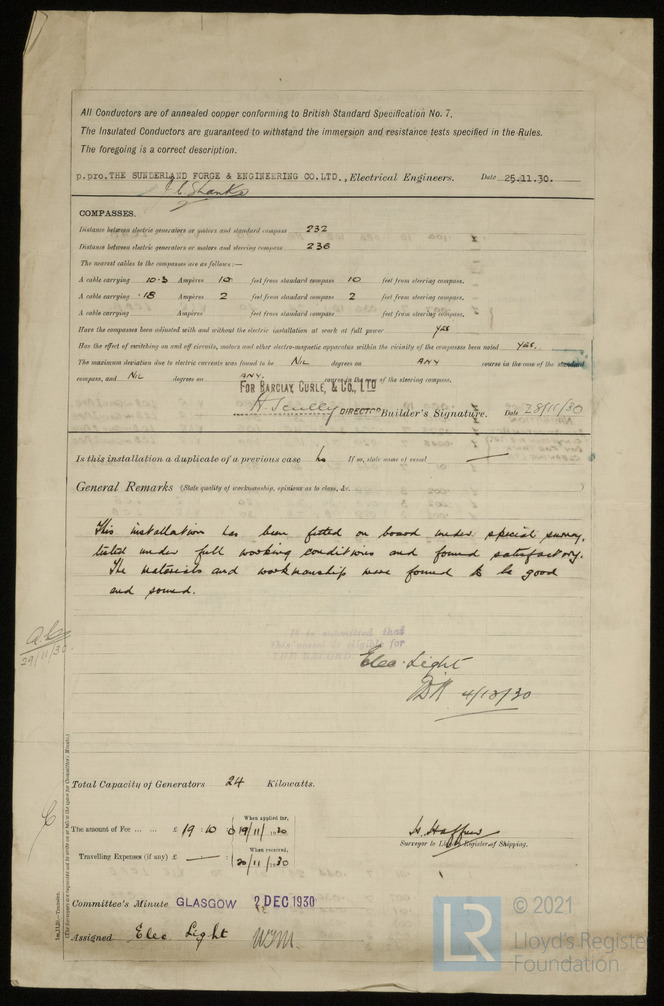 All Conductors are of annealed copper conforming to British Standard Specification No. 7.
The Insulated Conductors are guaranteed to withstand the immersion and resistance tests specified in the Rules.
The foregoing is a correct description.
p.pro. THE SUNDERLAND FORGE & ENGINEERING CO.LTD., Electrical Engineers. Date 25.11.30.
Shanks
COMPASSES.
Distance between electric generators or motors and standard compass 232
Distance between electric generators or motors and steering compass 236
The nearest cables to the compasses are as follows:—
A cable carrying 10.3 Ampères 10 feet from standard compass 10 feet from steering compass.
A cable carrying .18 Ampères 2 feet from standard compass 2 feet from steering compass.
A cable carrying Ampères feet from standard compass feet from steering compass.
Have the compasses been adjusted with and without the electric installation at work at full power yes
Has the effect of switching on and off circuits, motors and other electro-magnetic apparatus within the vicinity of the compasses been noted yes.
The maximum deviation due to electric currents was found to be Nil degrees on any course in the case of the standard
compass, and Nil degrees on any. course in the case of the steering compass.
FOR BARCLAY, CURLE, & CO., LTD
H. Scully DIRECTOR Builder's Signature. Date 28/11/30
Is this installation a duplicate of a previous case no If so, state name of vessel —
General Remarks (State quality of workmanship, opinions as to class, &c.)
This installation has been fitted on board under special survey,
tested under full working conditions and found satisfactory.
The materials and workmanship were found to be good
and sound.
29/11/30.
It is submitted that
this vessel is eligible for
THE RECORD
Elec. Light
4/12/30
Total Capacity of Generators 24 Kilowatts.
The amount of Fee ... ... £ 19 : 10 : 0 When applied for, 19/11/1930
Travelling Expenses (if any) £ — : When received, 20/11/1930
Surveyor to Lloyd's Register of Shipping.
Committee's Minute GLASGOW 2 DEC 1930
Assigned Elec Light
(The Surveyors are requested not to write on or below the space for Committee's Minute.)
LR
© 2021
Lloyd's Register
Foundation